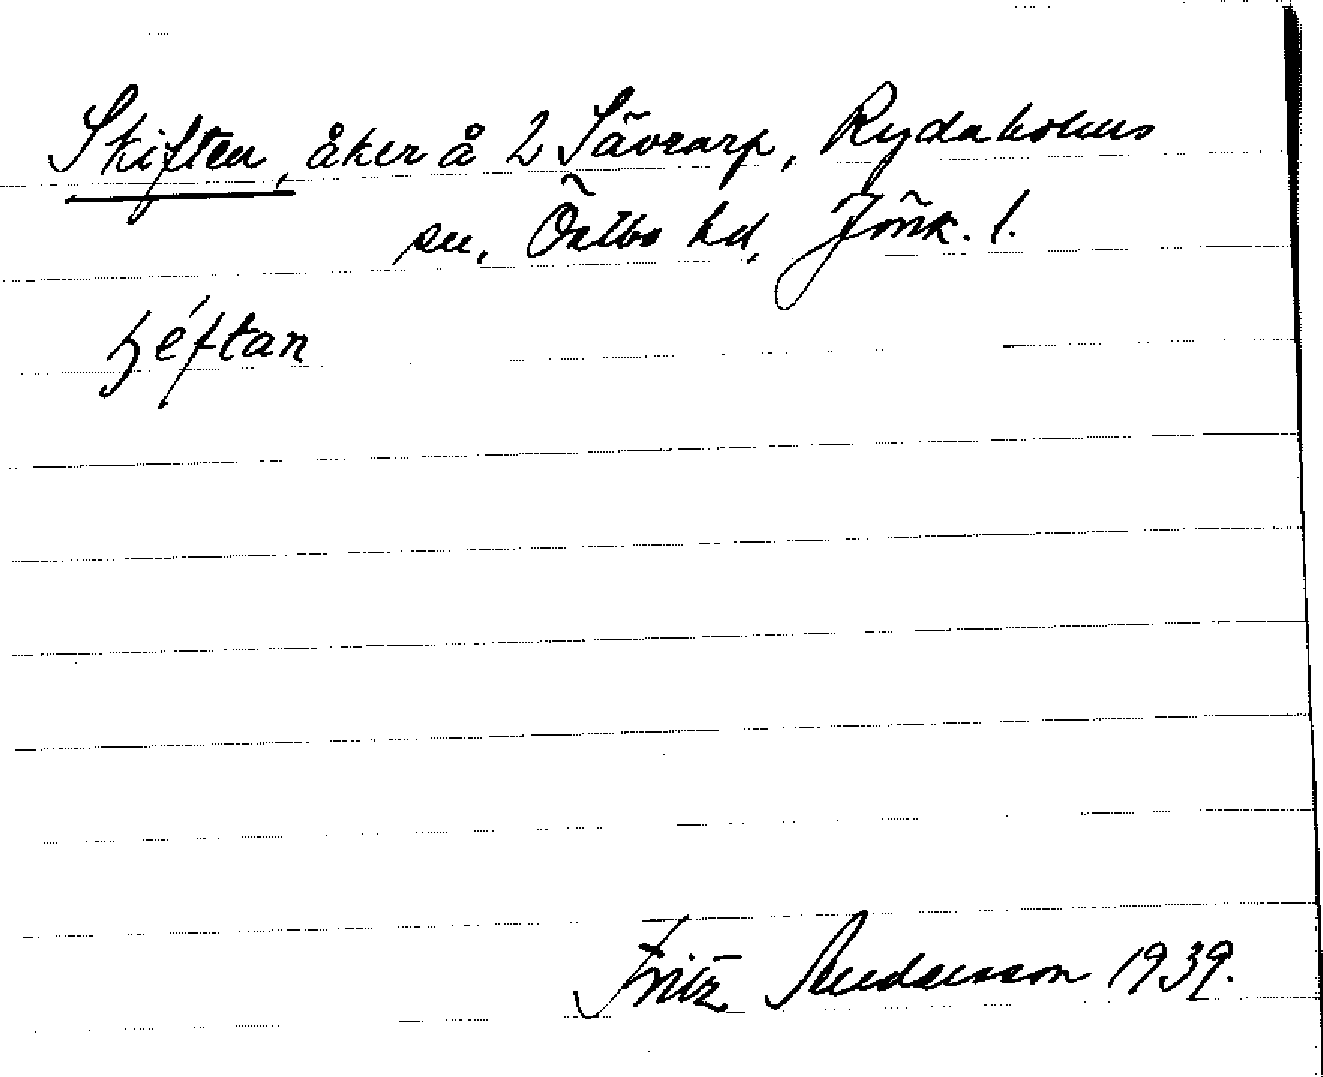 Skiften, åker å 2 Sävrarp, Rydaholms
sn, Östbo hd, Jönk. l.
ʒéftan
Fritz Andersson 1939.